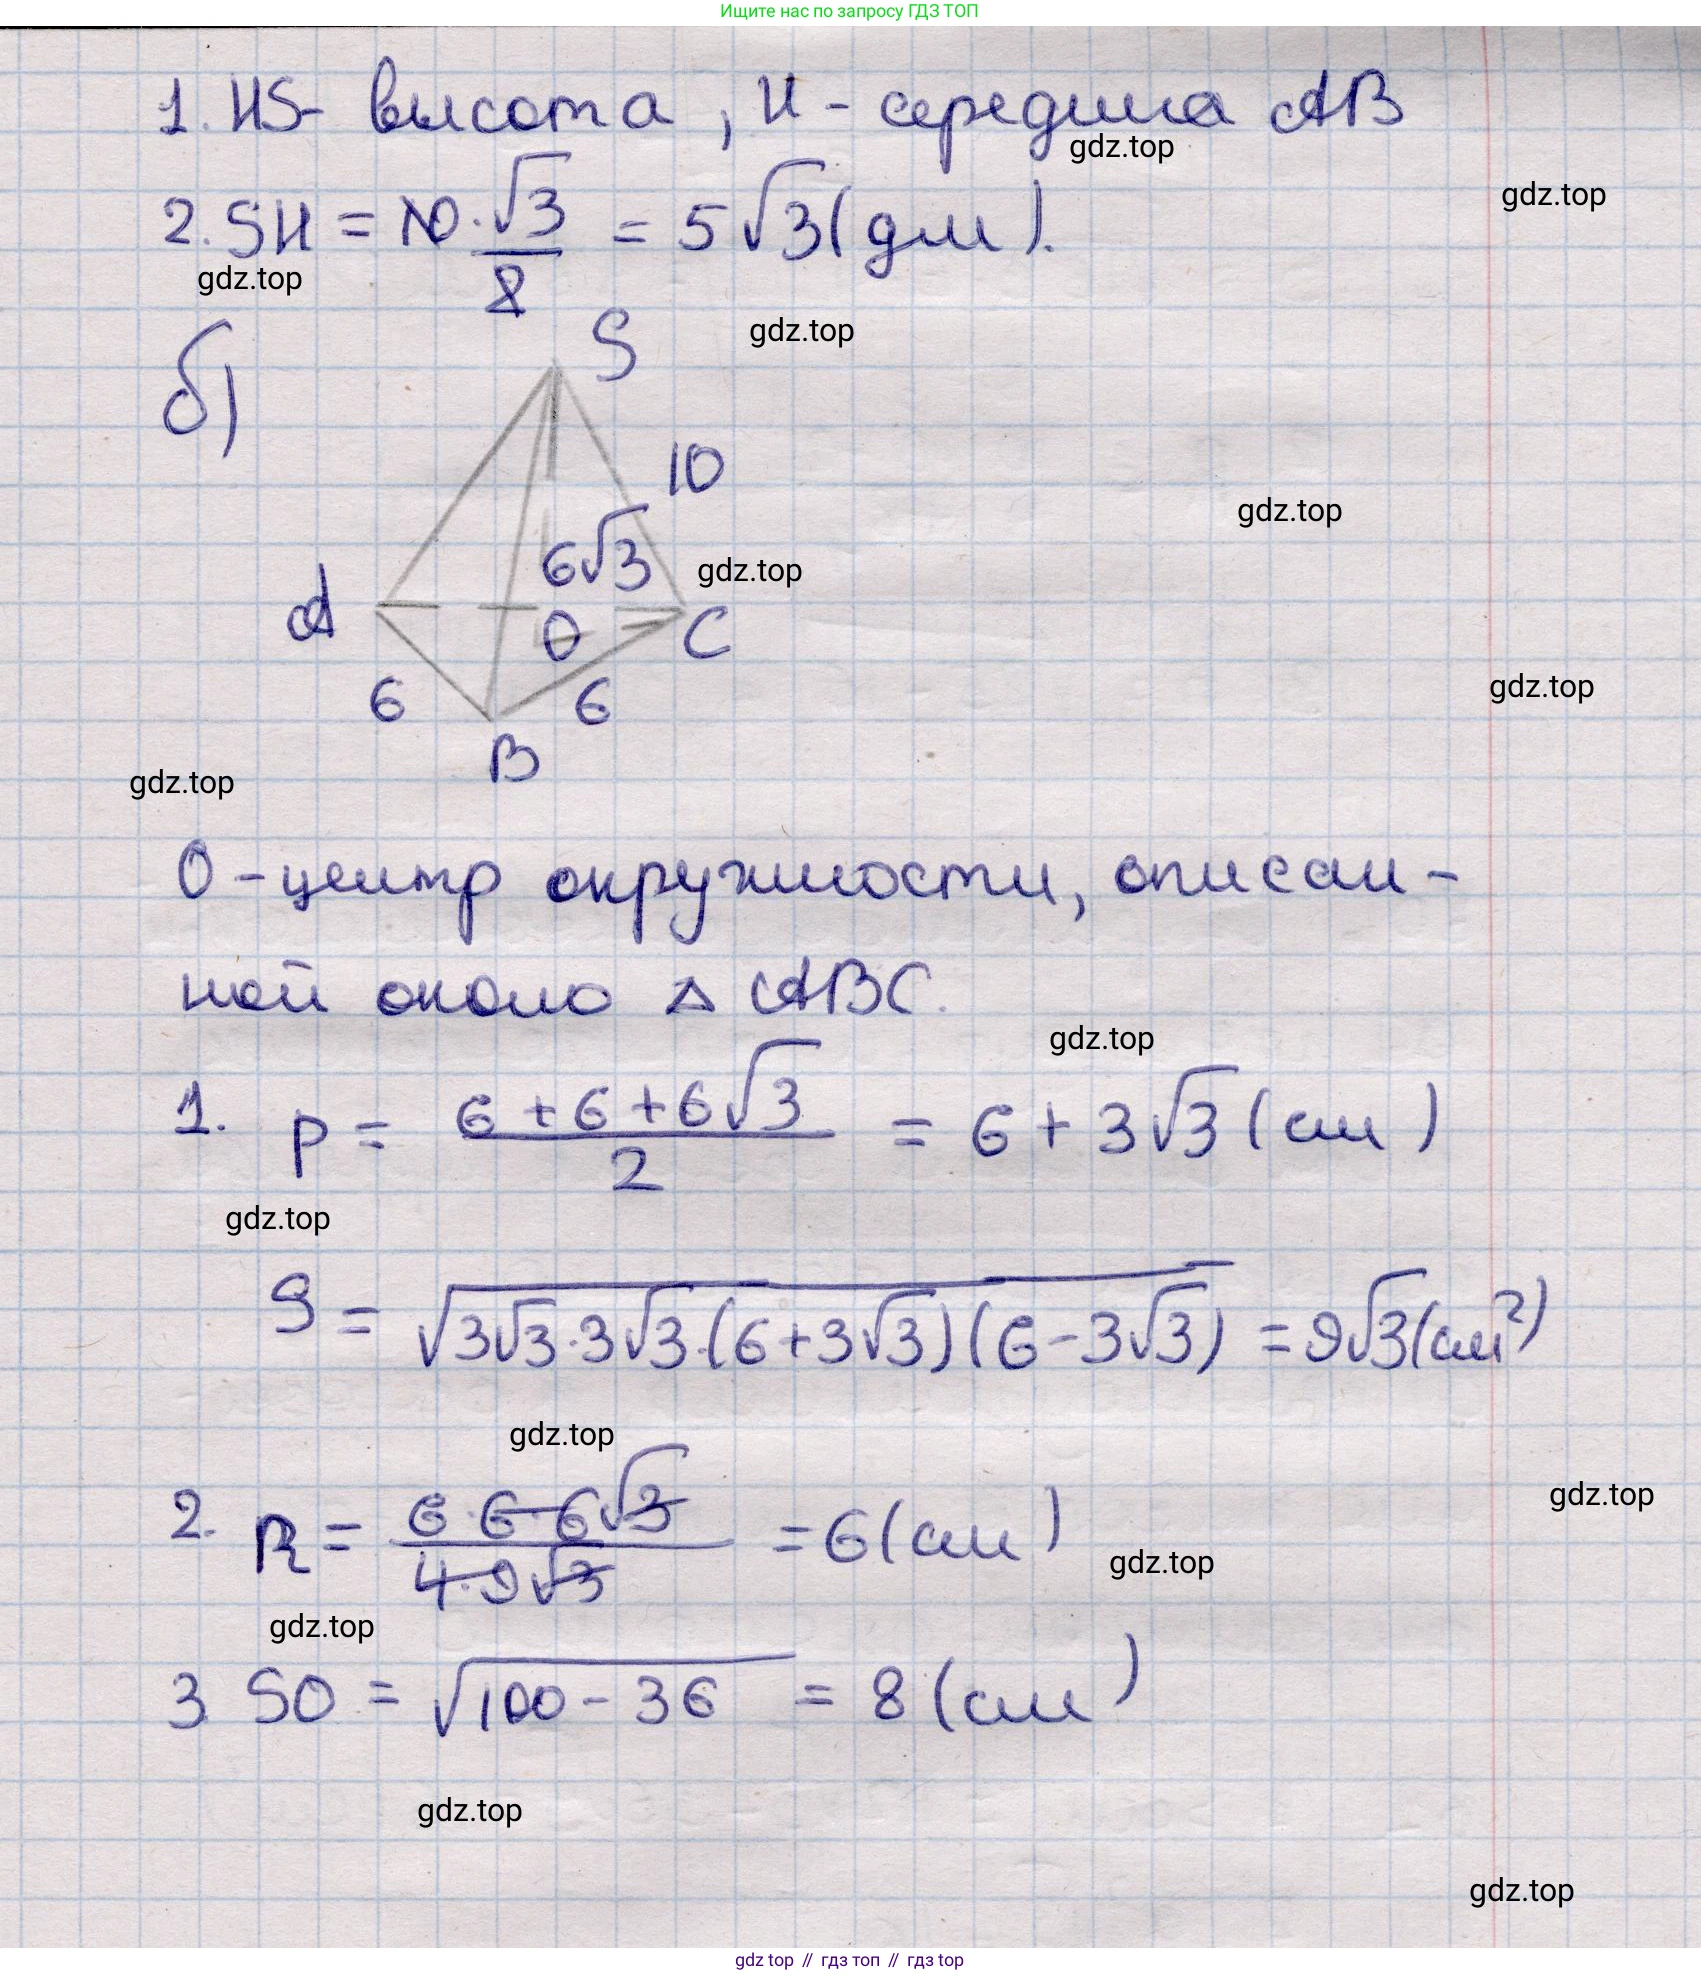 Ищите нас по запросу ГДЗ ТОП
1. HS - высота, H - середина AB
gdz.top
gdz.top
2. SH = 10 · √3/2 = 5√3 (дм).
gdz.top
gdz.top
б)
S
10
gdz.top
6√3
gdz.top
A
O
C
6
6
gdz.top
B
gdz.top
O - центр окружности, описан-
ной около △ ABC.
gdz.top
1. p = (6 + 6 + 6√3)/2 = 6 + 3√3 (см)
gdz.top
S = √(3√3 · 3√3 · (6 + 3√3)(6 - 3√3)) = 9√3 (см²)
gdz.top
gdz.top
2. R = (6 · 6 · 6√3)/(4 · 9√3) = 6 (см)
gdz.top
gdz.top
3 SO = √(100 - 36) = 8 (см)
gdz.top
gdz.top
gdz top // гдз топ // гдз top